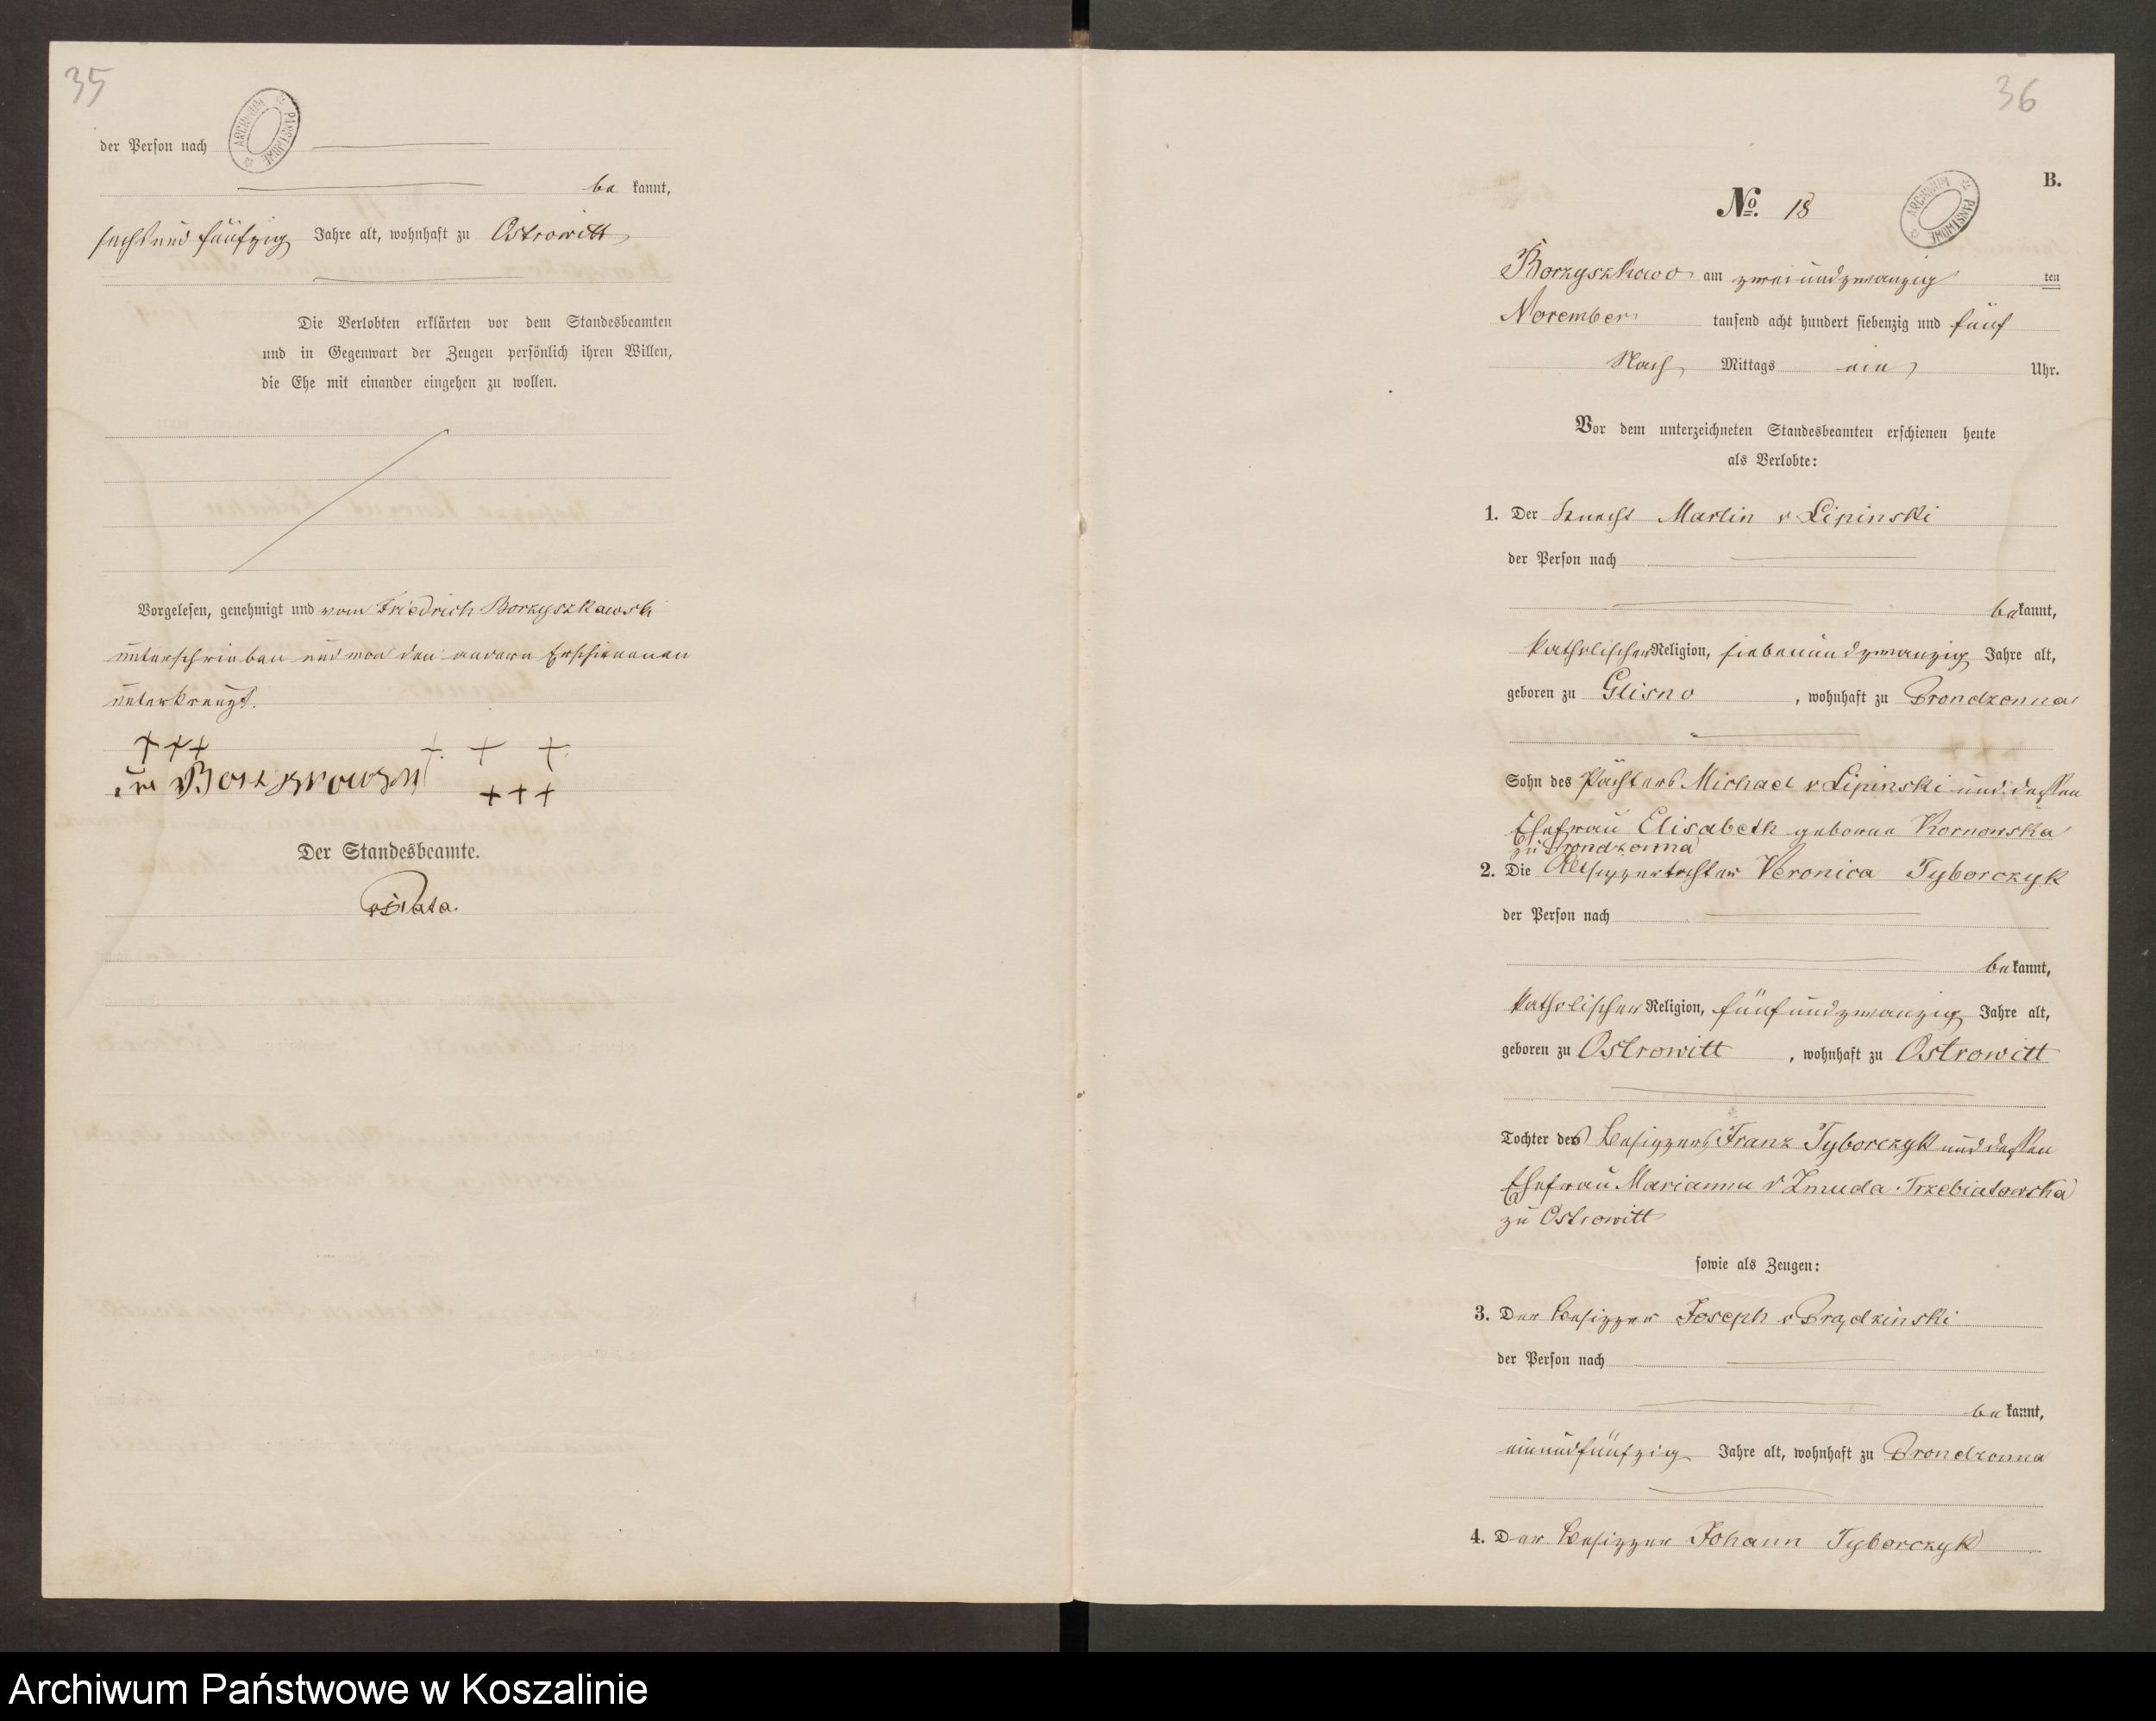 35
der Person nach
ARCHIWUM PAŃSTWOWE
be kannt,
sechsundfünfzig Jahre alt, wohnhaft zu Ostrowitt
Die Verlobten erklärten vor dem Standesbeamten
und in Gegenwart der Zeugen persönlich ihren Willen,
die Ehe mit einander eingehen zu wollen.
Vorgelesen, genehmigt und vom Friedrich Borzyszkowski
unterschrieben und von den andern Erschienenen
unterkreuzt.
+++ + + +
+++
Der Standesbeamte.
36
B.
No. 18
ARCHIWUM PAŃSTWOWE
Borzyszkowo am zweiundzwanzig ten
November tausend acht hundert siebenzig und fünf
Nach Mittags ein Uhr.
Vor dem unterzeichneten Standesbeamten erschienen heute
als Verlobte:
1. Der Knecht Martin v Lipinski
der Person nach
bekannt,
katholischer Religion, siebenundzwanzig Jahre alt,
geboren zu Glisno , wohnhaft zu Prondzonna
Sohn des Pächters Michael v Lipinski und dessen
Ehefrau Elisabeth geborne
zu Prondzonna
2. Die Altsitzertochter Veronica Tyborczyk
der Person nach
bekannt,
katholischer Religion, fünfundzwanzig Jahre alt,
geboren zu Ostrowitt , wohnhaft zu Ostrowitt
Tochter des Besitzers Franz Tyborczyk und dessen
Ehefrau Marianna v Zmuda Trzebiatowska
zu Ostrowitt
sowie als Zeugen:
3. Der Besitzer Joseph v Prądzinski
der Person nach
be kannt,
einundfünfzig Jahre alt, wohnhaft zu Prondzonna
4. Der Besitzer Johann Tyborczyk
Archiwum Państwowe w Koszalinie